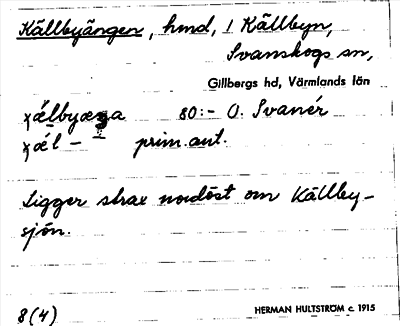 Källbyängen, hmd, i Källbyn,
Svanskogs sn,
Gillbergs hd, Värmlands län
80:- O. Svanér
prim. ant.
Ligger strax nordöst om Källby-
sjön.
8(4)
HERMAN HULTSTRÖM c. 1915